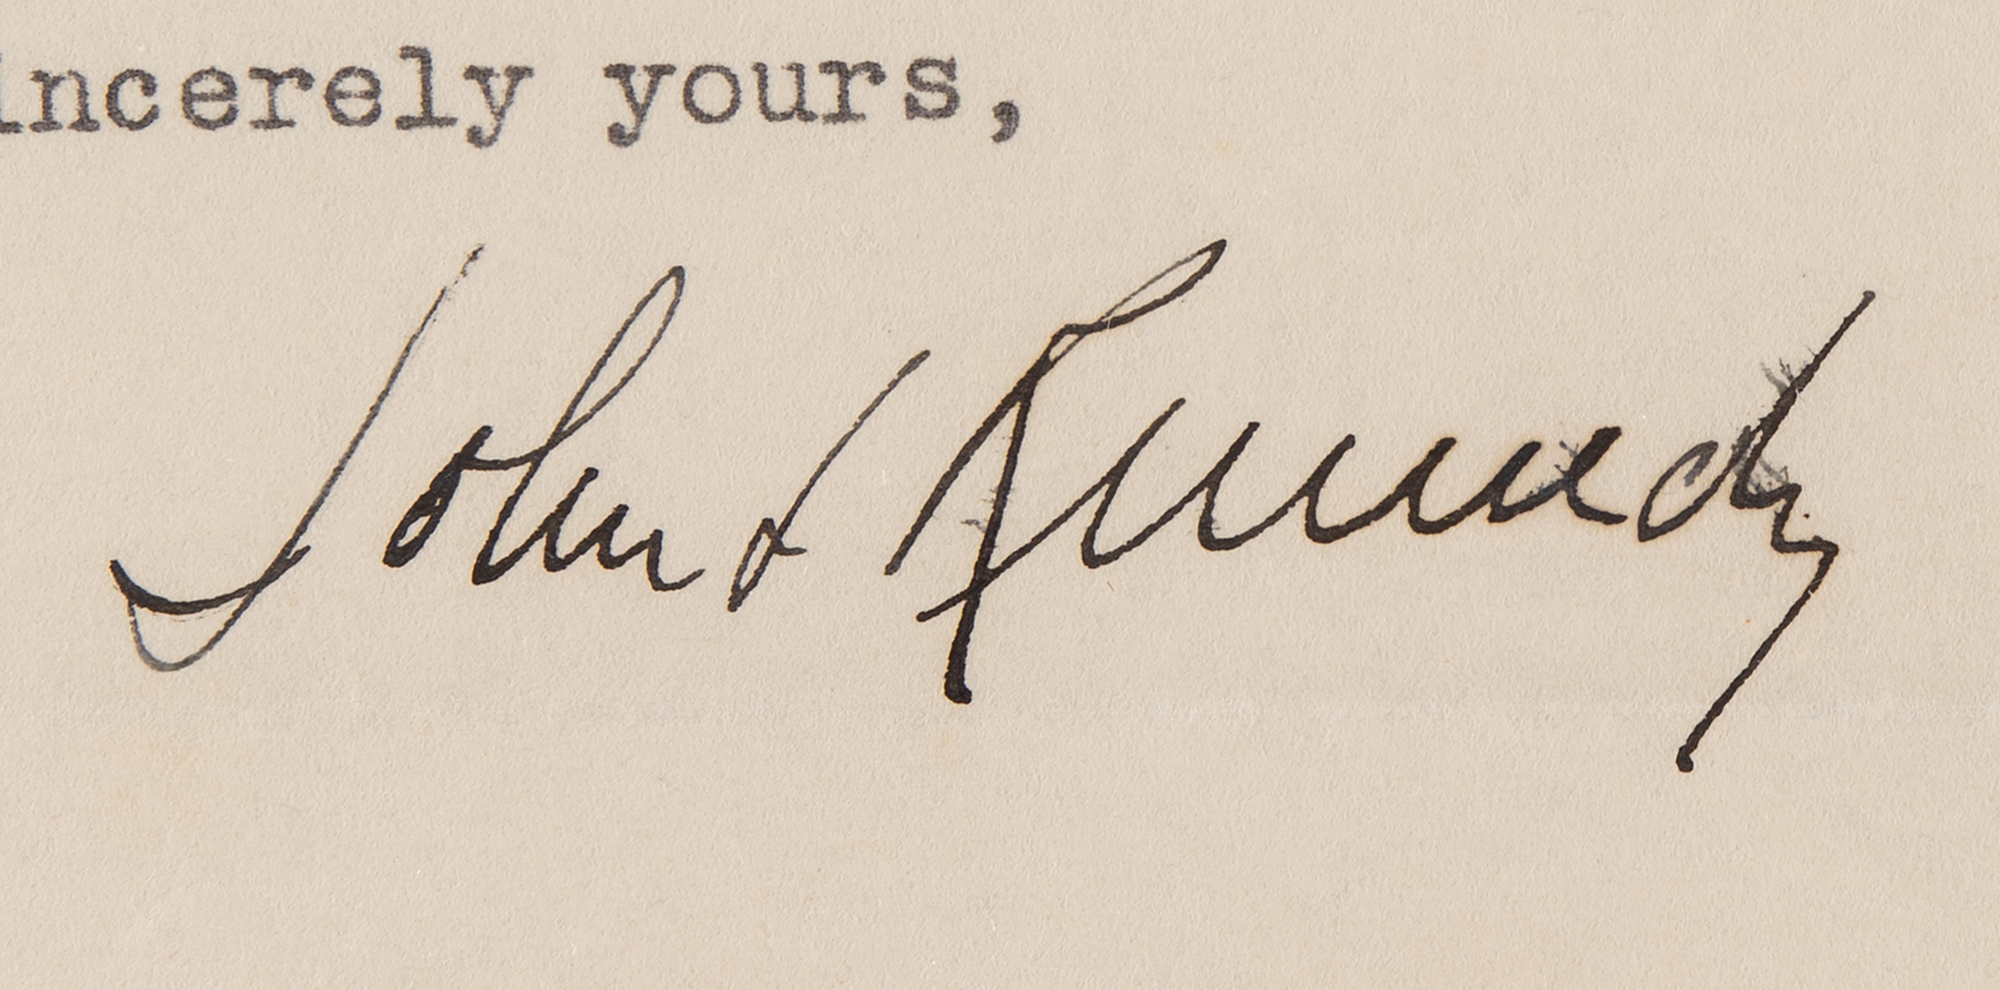 incerely yours,
John F Kennedy